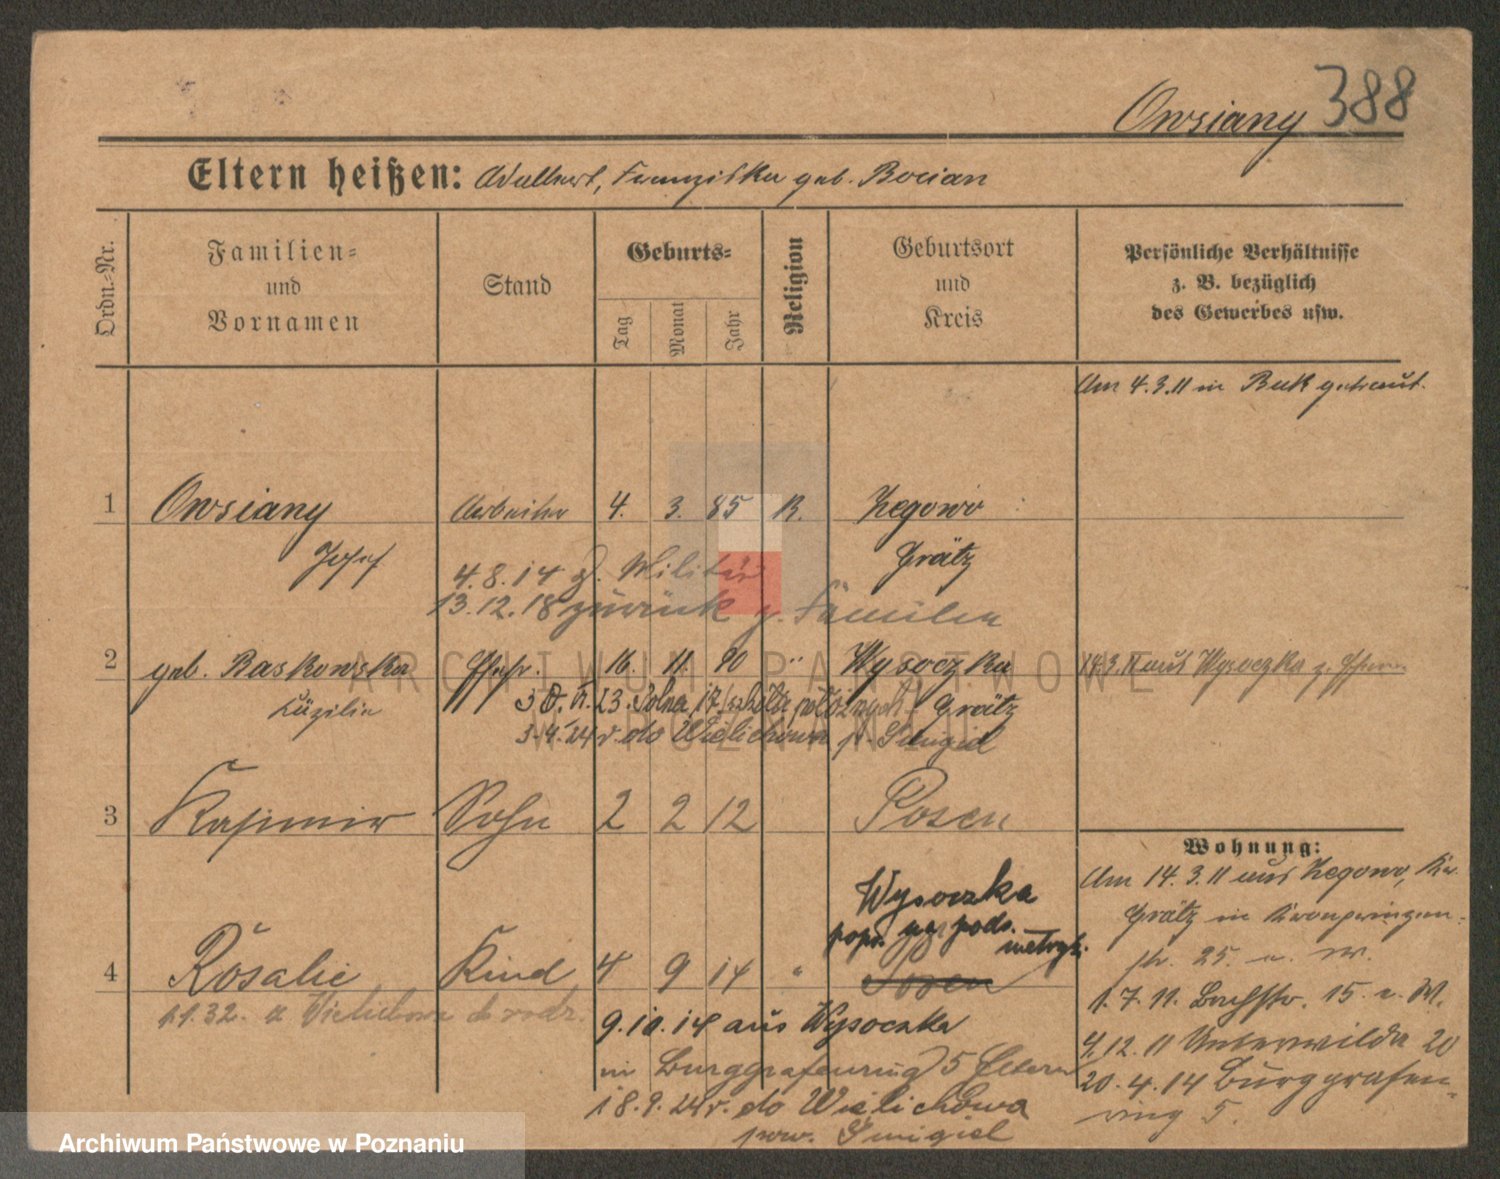 Owsiany 388
Eltern heißen: Adalbert, Franziska geb. Bocian
Ordn.-Nr.
Familien-
und
Vornamen
Stand
Geburts-
Tag
Monat
Jahr
Religion
Geburtsort
und
Kreis
Persönliche Verhältnisse
z. B. bezüglich
des Gewerbes usw.
Am 4.3.11 in Buk getraut.
1 Owsiany Arbeiter 4. 3. 85 R. Zegowo
Josef Grätz
4.8.14 z. Militär
13.12.18 zurück z. Familie
2 geb. Baskowska Ehefr. 16. 11. 90 " Wysoczka 14.3.11 aus Wysoczka z.
Cäzilie Grätz
3.4.24 r. do Wielichowa p. Smigiel
3 Kasimir Sohn 2 2 12 Posen
Wohnung:
Am 14.3.11 aus Zegowo, Kr.
Grätz in Kronprinzen-
str. 25.
1.7.11. Bachstr. 15.
4.12.11 Unterwilda 20
20.4.14 Burggrafen-
ring 5.
Wysoczka
popr. na pods. metryk.
4 Rosalie Kind 4 9 14 " Posen
1.1.32. z Wielichowa do rodz.
9.10.14 aus Wysoczka
in Burggrafenring 5 Eltern
18.9.24 r. do Wielichowa
pow. Smigiel
ARCHIWUM PAŃSTWOWE
W POZNANIU
Archiwum Państwowe w Poznaniu